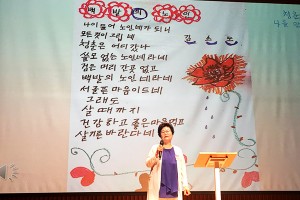 백발의 노래
나이들어 노인네가 되니
모든것이 그립네
청춘은 어디갔나
쓸모없는 노인네라네
검은머리 간곳 없고
백발의 노인네라네
서울픈 마음이드네
그래도
살 때 까지
건강하고 좋은마음먹고
살기를 바란다네